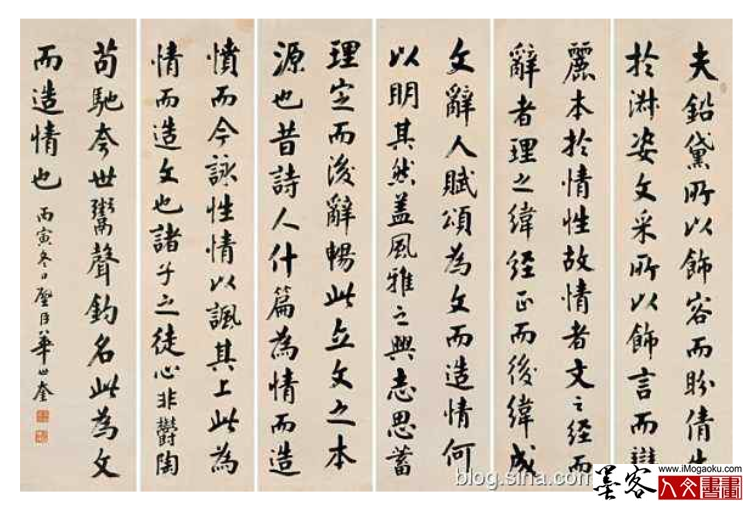 夫鉛黛所以飾容而盼倩生
於淑姿文采所以飾言而辯
麗本於情性故情者文之經而
辭者理之緯經正而後緯成
文辭人賦頌為文而造情何
以明其然蓋風雅之興志思蓄
理定而後辭暢此立文之本
源也昔詩人什篇為情而造
憤而今詠性情以諷其上此為
情而造文也諸子之徒心非鬱陶
苟馳夸世鬻聲釣名此為文
而造情也 丙寅冬日璧臣華世奎
blog.sina.com
墨客
www.iMogaoku.com
人文書畫